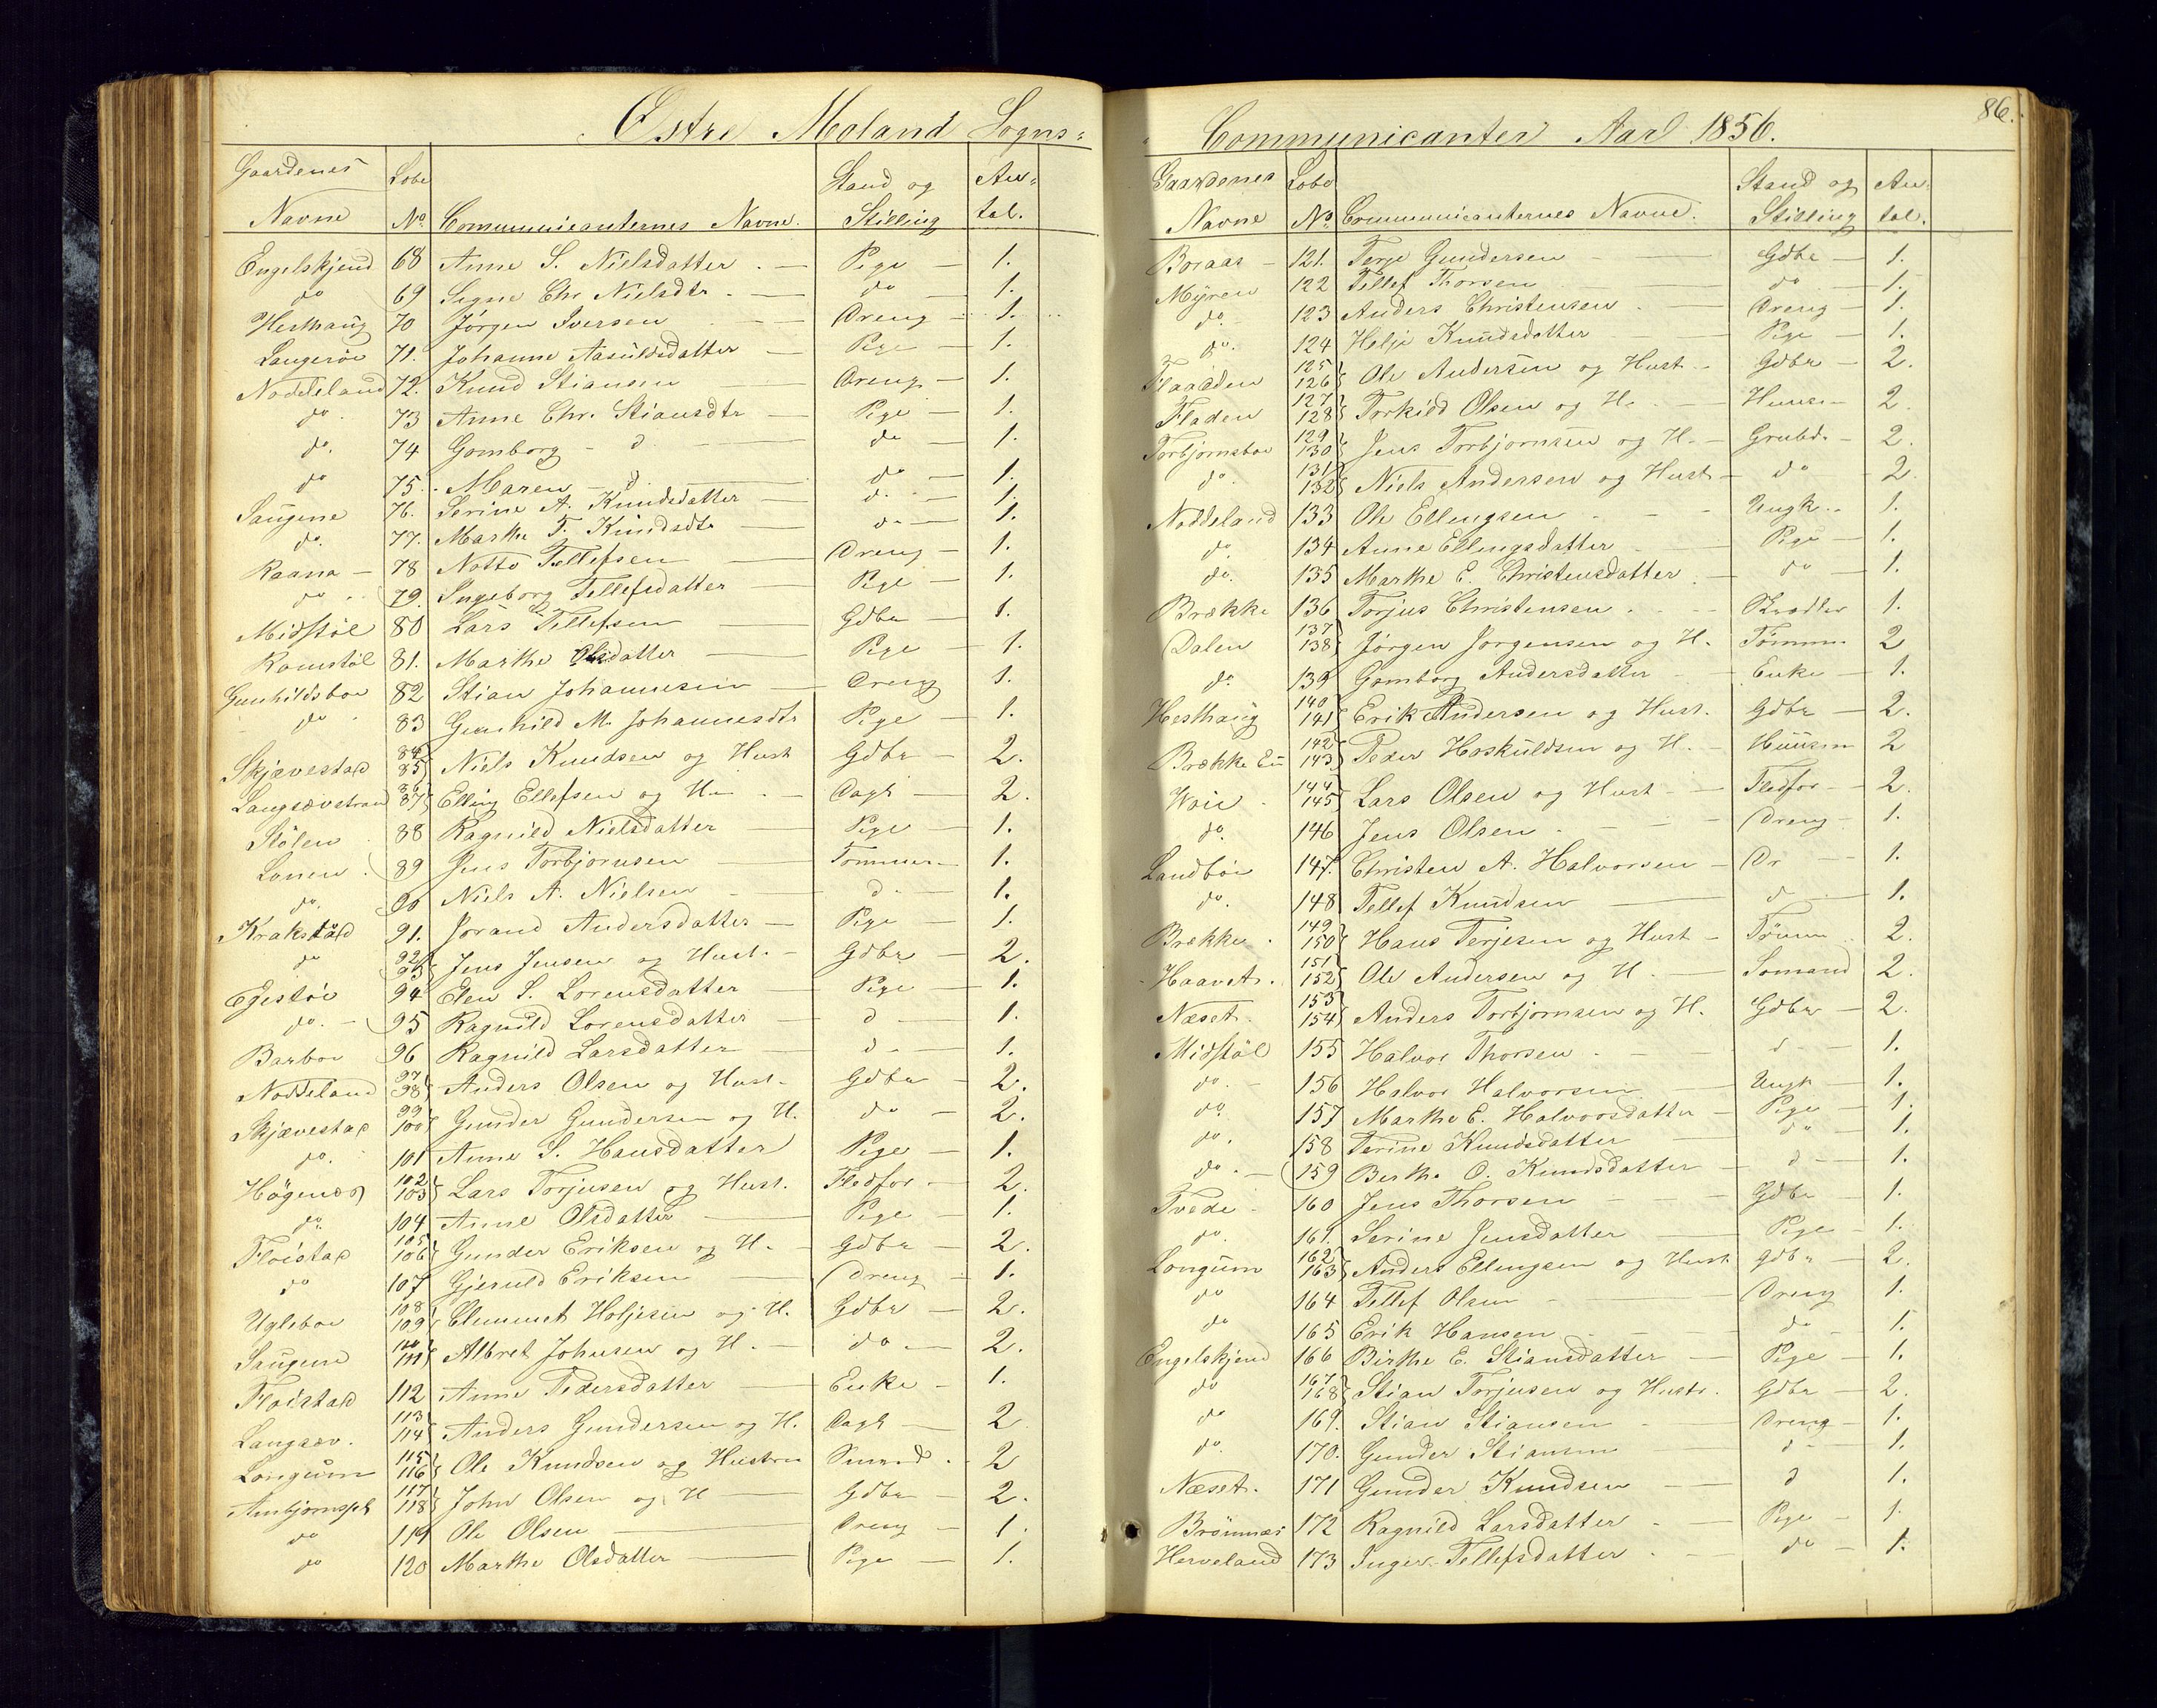 Østre Moland Sogns=
Gaardenes Løbe Stand og An=
Navne No Communicanternes Navne. Stilling tal.
Engelskjend 68 Anne S. Nielsdatter Pige 1.
do 69 Signe Chr Nielsdtr do 1.
Hesthaug 70 Jørgen Iversen Dreng 1.
Langerøe 71. Johanne Aasuldsdatter Pige 1.
Noddeland 72. Knud Stiansen Dreng 1.
do 73 Anne Chr. Stiansdtr Pige 1.
do. 74 Gomborg d do 1.
do 75. Maren d do 1.
Saugene 76. Serine A. Knudsdatter d. 1.
do. 77. Marthe T. Knudsdtr do 1.
Raana 78 Notto Tellefsen Dreng 1.
do 79. Ingeborg Tellefsdatter Pige 1.
Midstøl 80 Lars Tellefsen Gdbr 1.
Romstøl 81. Marthe Olsdatter Pige 1.
Gunhildsboe 82 Stian Johannesen Dreng 1.
do 83 Gunhild M. Johannesdtr Pige 1.
Skjævestad 84 85 Niels Knudsen og Hust Gdbr 2.
Langsævstrand 86 87 Elling Ellefsen og H. Dagl 2.
Stølen 88 Ragnild Nielsdatter Pige 1.
Lonen 89 Jens Torbjørnsen Tømmer 1.
do. 90 Niels A. Nielsen d. 1.
Krakstad 91. Jorand Andersdatter Pige 1.
do 92 93 Jens Jensen og Hust. Gdbr 2.
Egestøe 94 Elen S. Lorensdatter Pige 1.
do. 95 Ragnild Lorensdatter d 1.
Barboe 96 Ragnild Larsdatter d. 1.
Noddeland 97 98 Anders Olsen og Hust. Gdbr 2.
Skjævestad 99 100 Gunder Gundersen og H. do 2.
do. 101 Anne S. Hansdatter Pige 1.
Høgenæs 102 103 Lars Torjusen og Hust. Fledfør 2.
do. 104 Anne Olsdatter Pige 1.
Fløistad 105 106 Gunder Eriksen og H. Gdbr 2.
do 107 Gjeruld Eriksen Dreng 1.
Ugleboe 108 109 Clemmet Holjesen og H. Gdbr 2.
Saugene 110 111 Albret Johnsen og H. do. 2.
Fløistad 112 Anne Pedersdatter Enke 1.
Langsæv. 113 114 Anders Gundersen og H. Dagl 2
Longum 115 116 Ole Knudsen og Hustru Sømand 2
Arnbjørnspl 117 118 John Olsen og H Gdbr 2.
do 119 Ole Olsen Dreng 1
do 120 Marthe Olsdatter Pige 1.
86.
Communicanter Aar 1856.
Gaardenes Løbe Stand og An=
Navne No Communicanternes Navne. Stilling tal.
Boraas 121. Terje Gundersen Gdbr 1.
Myren 122 Tellef Thorsen do 1.
do. 123 Anders Christensen Dreng 1.
do. 124 Helje Knudsdatter Pige 1.
Flaaden 125 126 Ole Andersen og Hust. Gdbr 2.
Fladen 127 128 Torkild Olsen og H. Huusm 2.
Torbjørnsboe 129 130 Jens Torbjørnsen og H. Grubd. 2.
do. 131 132 Niels Andersen og Hust do 2
Noddeland 133 Ole Ellingsen Ungk. 1.
do. 134 Anne Ellingsdatter Pige 1.
do. 135 Marthe E. Christensdatter do 1.
Brække 136 Torjus Christensen 1.
Dalen 137 138 Jørgen Jørgensen og H. Tømmer 2
do. 139 Gomborg Andersdatter Enke 1.
Hesthaug 140 141 Erik Andersen og Hust. Gdbr 2.
Brække 142 143 Peder Hoskuldsen og H. Huusm 2
144 145 Lars Olsen og Hust Fledfør 2.
do. 146 Jens Olsen Dreng 1.
Landbøe 147. Christen A. Halvorsen Dr 1.
do. 148 Tellef Knudsen d 1.
Brække 149 150 Hans Terjesen og Hust Tømm 2.
Haavet. 151 152 Ole Andersen og H. Sømand 2.
Næset. 153 154 Anders Torbjørnsen og H. Gdbr 2.
Midstøl 155 Halvor Thorsen d 1.
do. 156 Halvor Halvorsen Ungk 1.
do. 157 Marthe E. Halvorsdatter Pige 1.
do. 158 Terine Knudsdatter do 1.
do. 159 Berthe O. Knudsdatter d 1.
Tvede 160 Jens Thorsen Gdbr 1.
do. 161. Serine Jensdatter Pige 1.
Longum 162 163 Anders Ellingsen og Hust Gdbr 2.
do 164 Tellef Olsen Dreng 1.
do 165 Erik Hansen do 1.
Engelskjend 166 Birthe E. Stiansdatter Pige 1.
do 167 168 Stian Torjusen og Hustr. Gdbr 2.
do 169. Stian Stiansen Dreng 1.
do. 170. Gunder Stiansen d 1.
Næset. 171 Gunder Knudsen d 1.
Brønnæs 172 Ragnild Larsdatter Pige 1.
Herveland 173 Inger Tellefsdatter do 1.